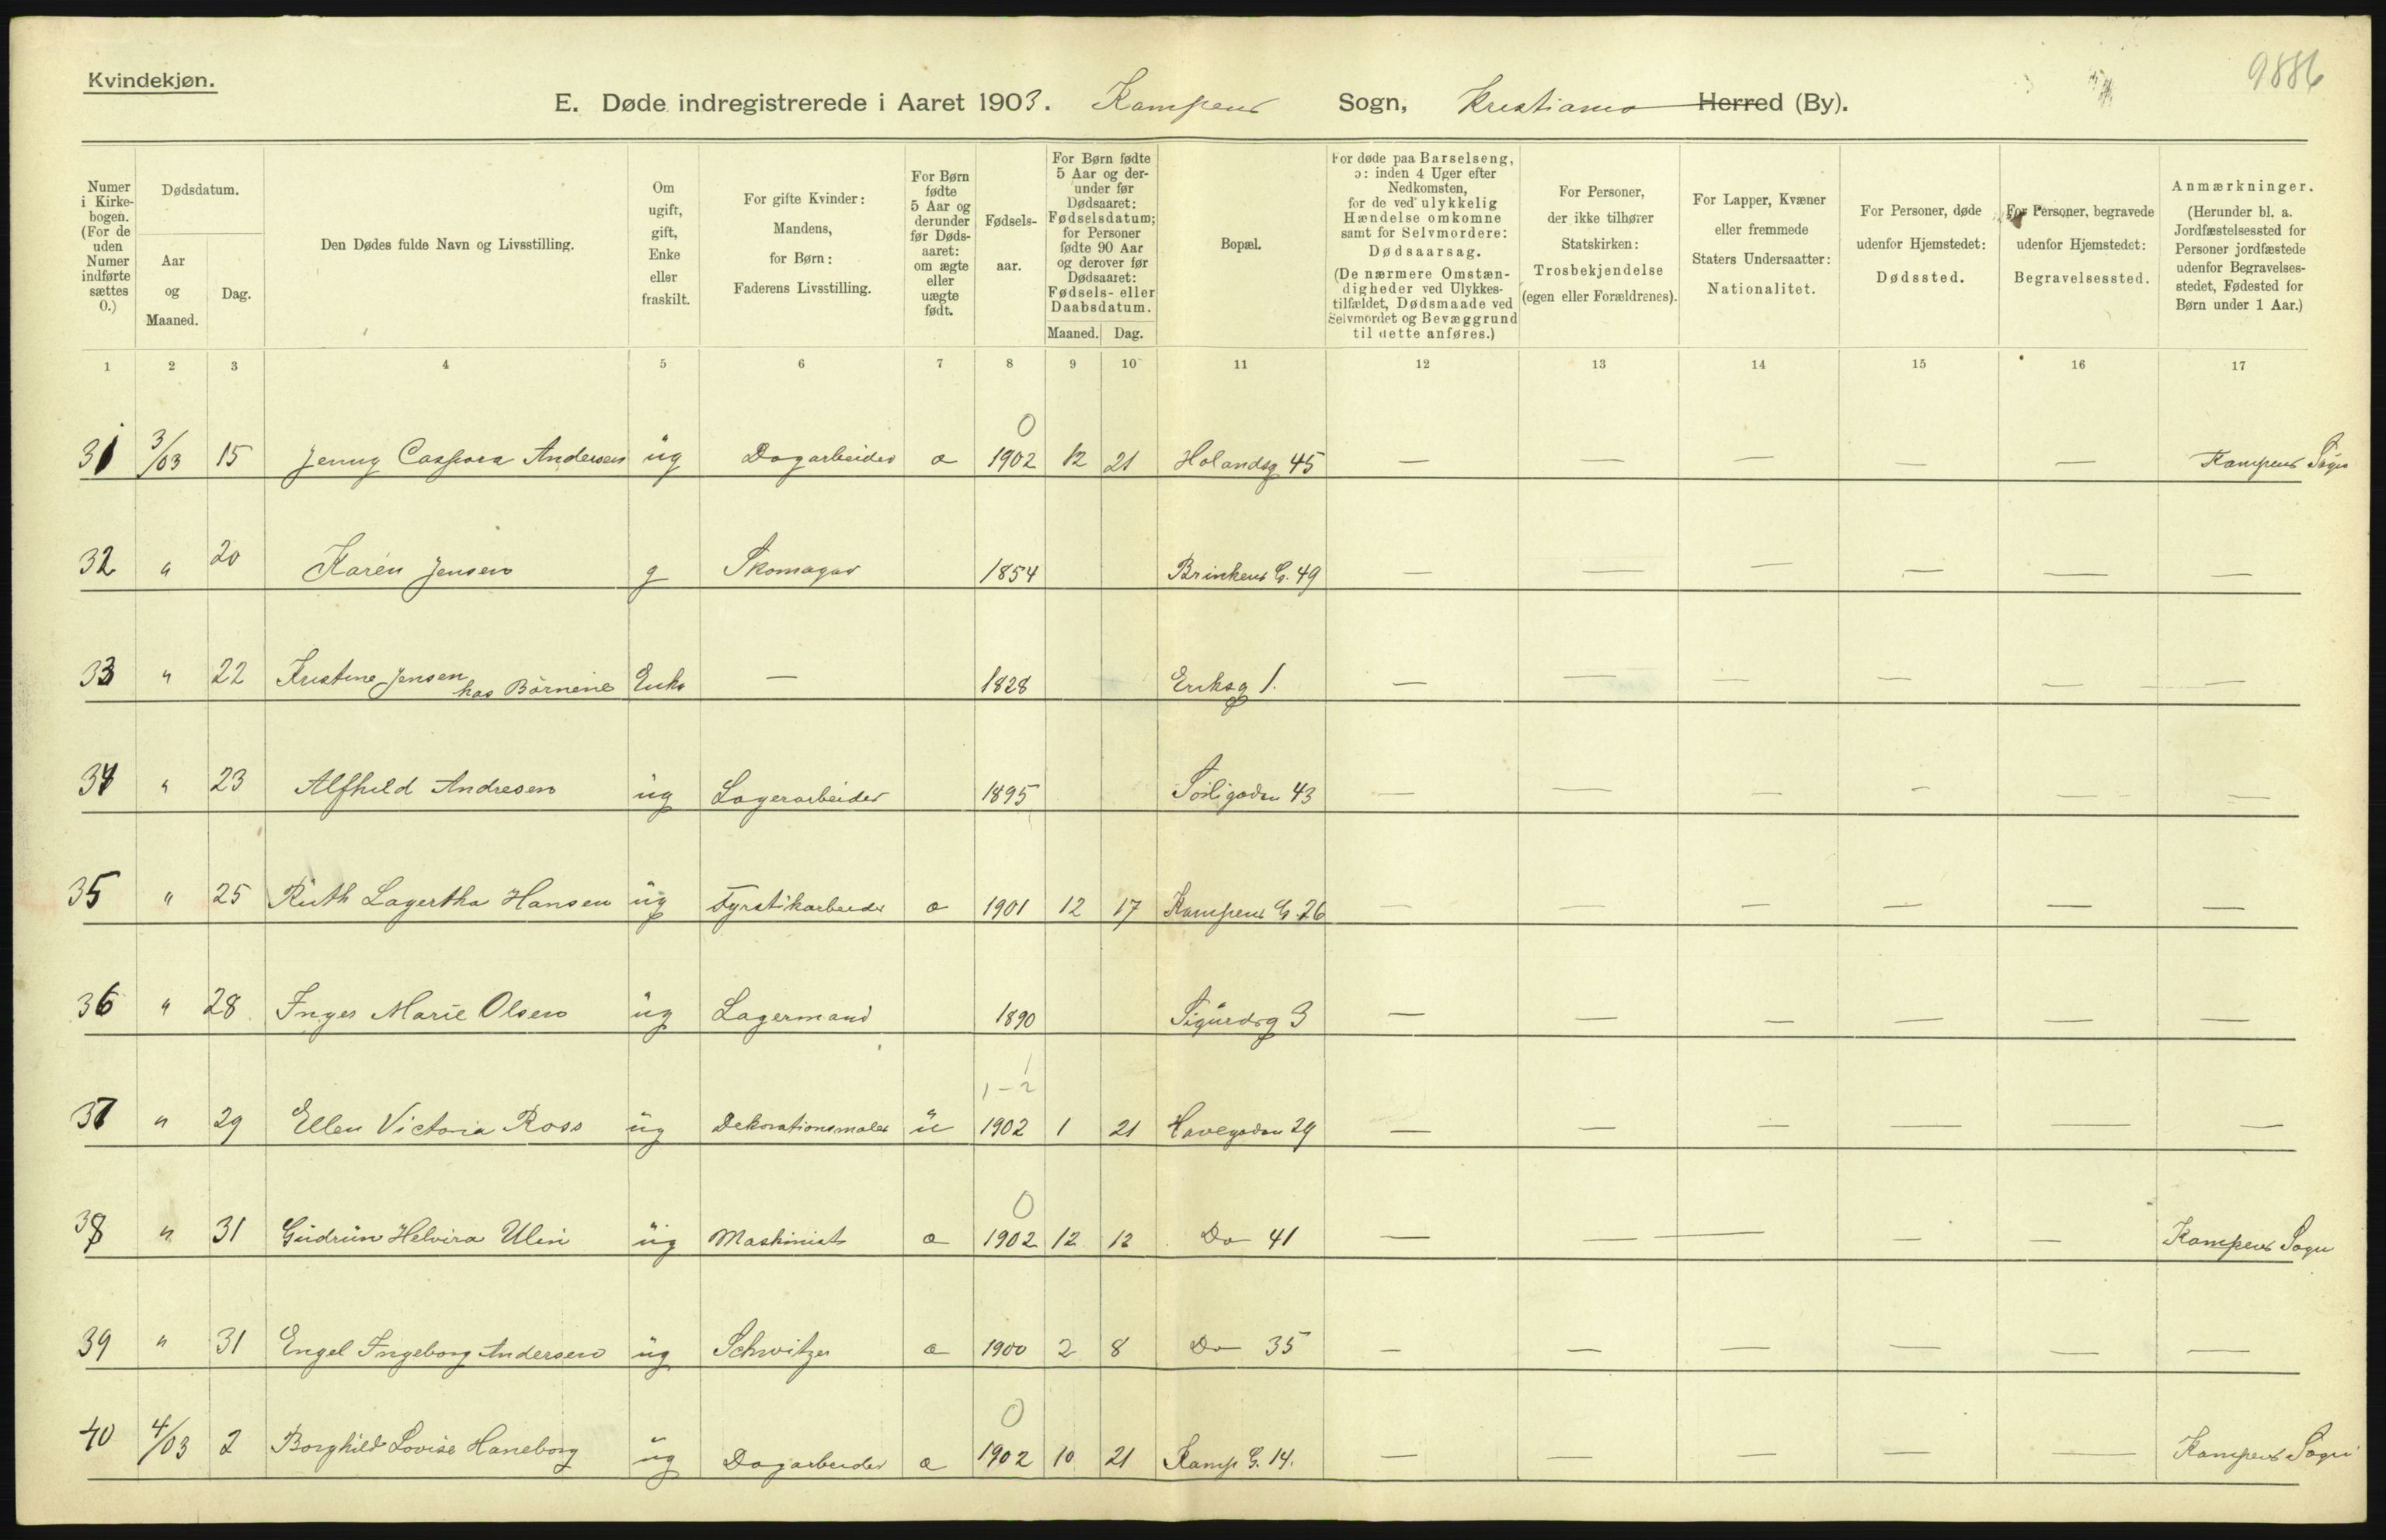 9886
Kvindekjøn.
E. Døde indregistrerede i Aaret 1903. Kampens Sogn, Kristiania Herred (By).
Numer i Kirkebogen. (For de uden Numer indførte sættes 0.)
Dødsdatum.
Aar og Maaned.
Dag.
Den Dødes fulde Navn og Livsstilling.
Om ugift, gift, Enke eller fraskilt.
For gifte Kvinder: Mandens, for Børn: Faderens Livsstilling.
For Børn fødte 5 Aar og derunder før Dødsaaret: om ægte eller uægte født.
Fødselsaar.
For Børn fødte 5 Aar og derunder før Dødsaaret: Fødselsdatum; for Personer fødte 90 Aar og derover før Dødsaaret: Fødsels- eller Daabsdatum.
Maaned. Dag.
Bopæl.
For døde paa Barselseng, ɔ: inden 4 Uger efter Nedkomsten, for de ved ulykkelig Hændelse omkomne samt for Selvmordere: Dødsaarsag. (De nærmere Omstændigheder ved Ulykkestilfældet, Dødsmaade ved Selvmordet og Bevæggrund til dette anføres.)
For Personer, der ikke tilhører Statskirken: Trosbekjendelse (egen eller Forældrenes).
For Lapper, Kvæner eller fremmede Staters Undersaatter: Nationalitet.
For Personer, døde udenfor Hjemstedet: Dødssted.
For Personer, begravede udenfor Hjemstedet: Begravelsessted.
Anmærkninger. (Herunder bl. a. Jordfæstelsessted for Personer jordfæstede udenfor Begravelsesstedet, Fødested for Børn under 1 Aar.)
1 2 3 4 5 6 7 8 9 10 11 12 13 14 15 16 17
0
31 3/03 15 Jenny Caspara Andersen ug Dagarbeider a 1902 12 21 Holandsg 45 — — — — — Kampens Sogn
32 " 20 Karen Jensen g Skomager 1854 Brinkens G. 49 — — — — — —
33 " 22 Kristine Jensen hos Börnene Enke — 1828 Eriksg 1. — — — — — —
34 " 23 Alfhild Andresen ug Lagerarbeider 1895 Sörligaden 43 — — — — — —
35 " 25 Ruth Lagertha Hansen ug Fyrstikarbeider a 1901 12 17 Kampens G. 26 — — — — — —
36 " 28 Inger Marie Olsen ug Lagermand 1890 Sigurdsg 3 — — — — — —
1-2
37 " 29 Ellen Victoria Ross ug Dekorationsmaler u 1902 1 21 Havegaden 29 — — — — —
0
38 " 31 Gudrun Helvira Ulin ug Maskinist a 1902 12 12 Do 41 — — — — — Kampens Sogn
39 " 31 Engel Ingeborg Andersen ug Schwitzer a 1900 2 8 Do 35 — — — — — —
0
40 4/03 2 Borghild Lovise Haneborg ug Dagarbeider a 1902 10 21 Kamp G. 14. — — — — — Kampens Sogn